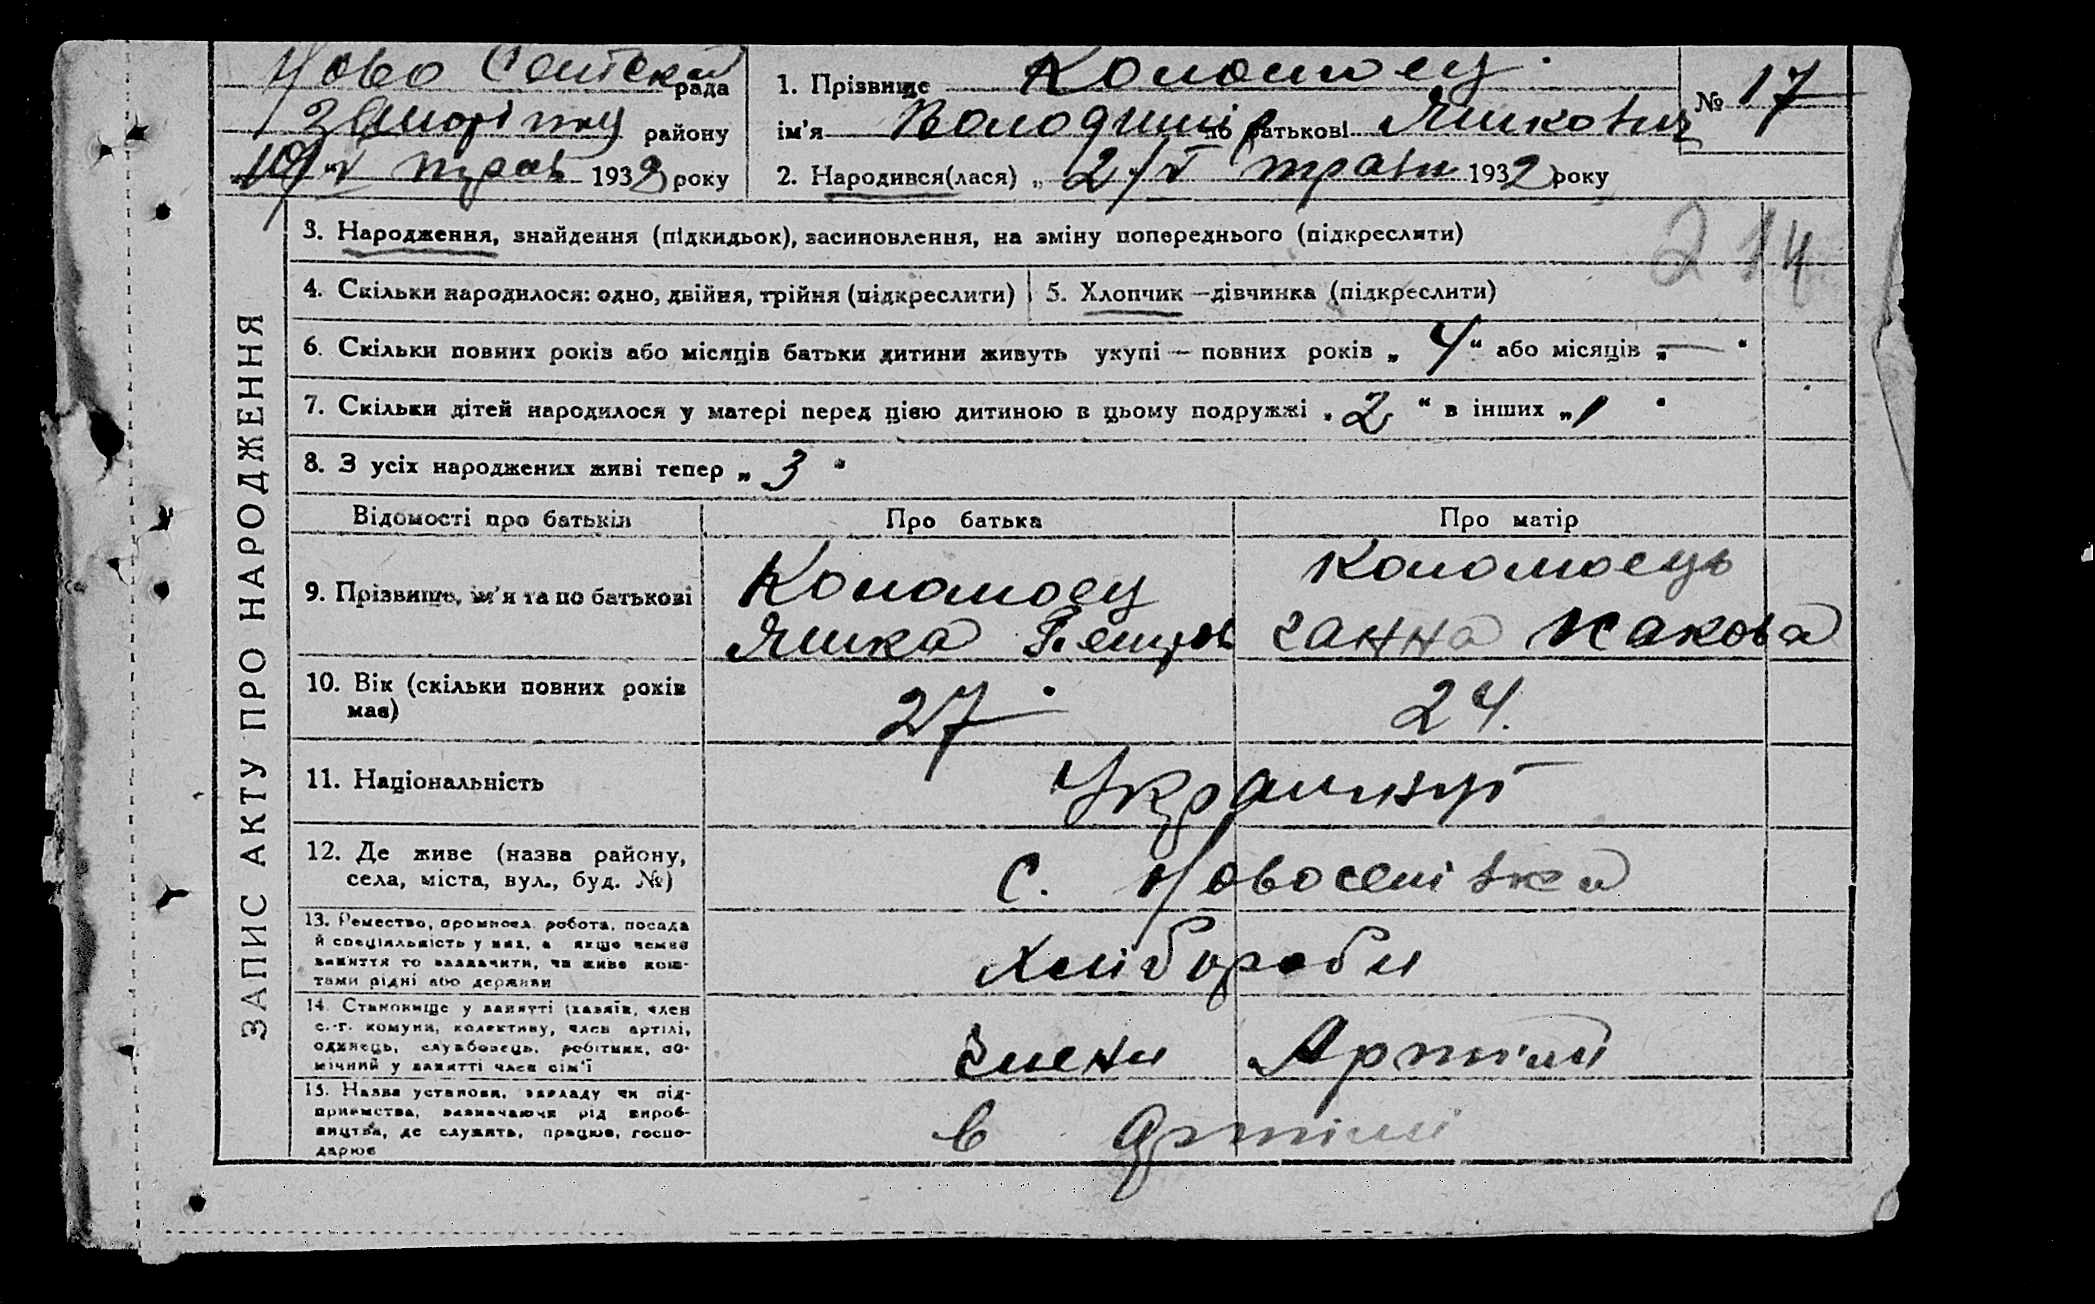 Ново Селівска рада
району
10/V трав 1932 року
1. Прізвище Коломоец
ім'я Володимир по батькові
№ 17
2. Народився(лася) „ 2/V трави 1932 року
214
ЗАПИС АКТУ ПРО НАРОДЖЕННЯ
3. Народження, знайдення (підкидьок), засиновлення, на зміну попереднього (підкреслити)
4. Скільки народилося: одно, двійня, трійня (підкреслити)
5. Хлопчик—дівчинка (підкреслити)
6. Скільки повних років або місяців батьки дитини живуть укупі — повних років „ 4 “ або місяців „ — “
7. Скільки дітей народилося у матері перед цією дитиною в цьому подружжі „ 2 “ в інших „ 1 “
8. З усіх народжених живі тепер „ 3 “
Відомості про батьків
Про батька
Про матір
9. Прізвище, ім'я та по батькові
Коломоец
Коломоець
Ганна
10. Вік (скільки повних років має)
27
24.
11. Національність
12. Де живе (назва району,
села, міста, вул., буд. №)
с. Новоселівка
13. Ремество, промисел, робота, посада
й спеціяльність у них, а якщо немає
заняття то зазначити, чи живе кош-
тами рідні або держави
Хлібороби
14. Становище у занятті (хазяїн, член
с.-г. комуни, колективу, член артілі,
одинець, службовець, робітник, по-
мічний у занятті член сім'ї
Члени Артілі
15. Назва установи, закладу чи під-
приємства, зазначаючи рід вироб-
ництва, де служить, працює, госпо-
дарює
в артілі